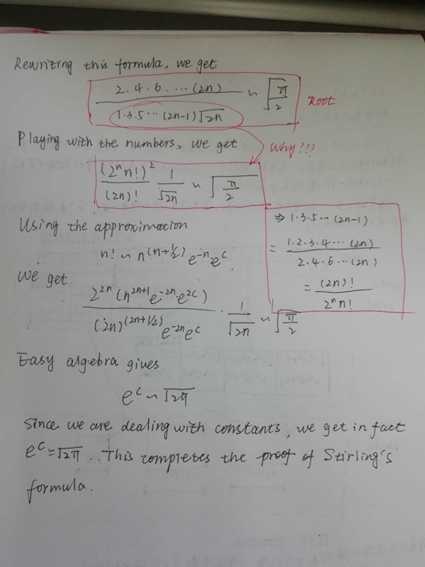 Rewriting this formula, we get
2·4·6·⋯(2n) / 1·3·5⋯(2n-1)√2n ~ √π/2
Root
Playing with the numbers, we get
Why???
(2ⁿn!)² / (2n)! 1/√2n ~ √π/2
⇒ 1·3·5⋯(2n-1)
= 1·2·3·4⋯(2n) / 2·4·6⋯(2n)
= (2n)! / 2ⁿn!
Using the approximation
n! ~ n^(n+1/2) e^-n e^c
We get
2^2n (n^2n+1 e^-2n e^2c) / (2n)^(2n+1/2) e^-2n e^c · 1/√2n ~ √π/2
Easy algebra gives
e^c ~ √2π
Since we are dealing with constants, we get in fact
e^c = √2π. This completes the proof of Stirling's
formula.